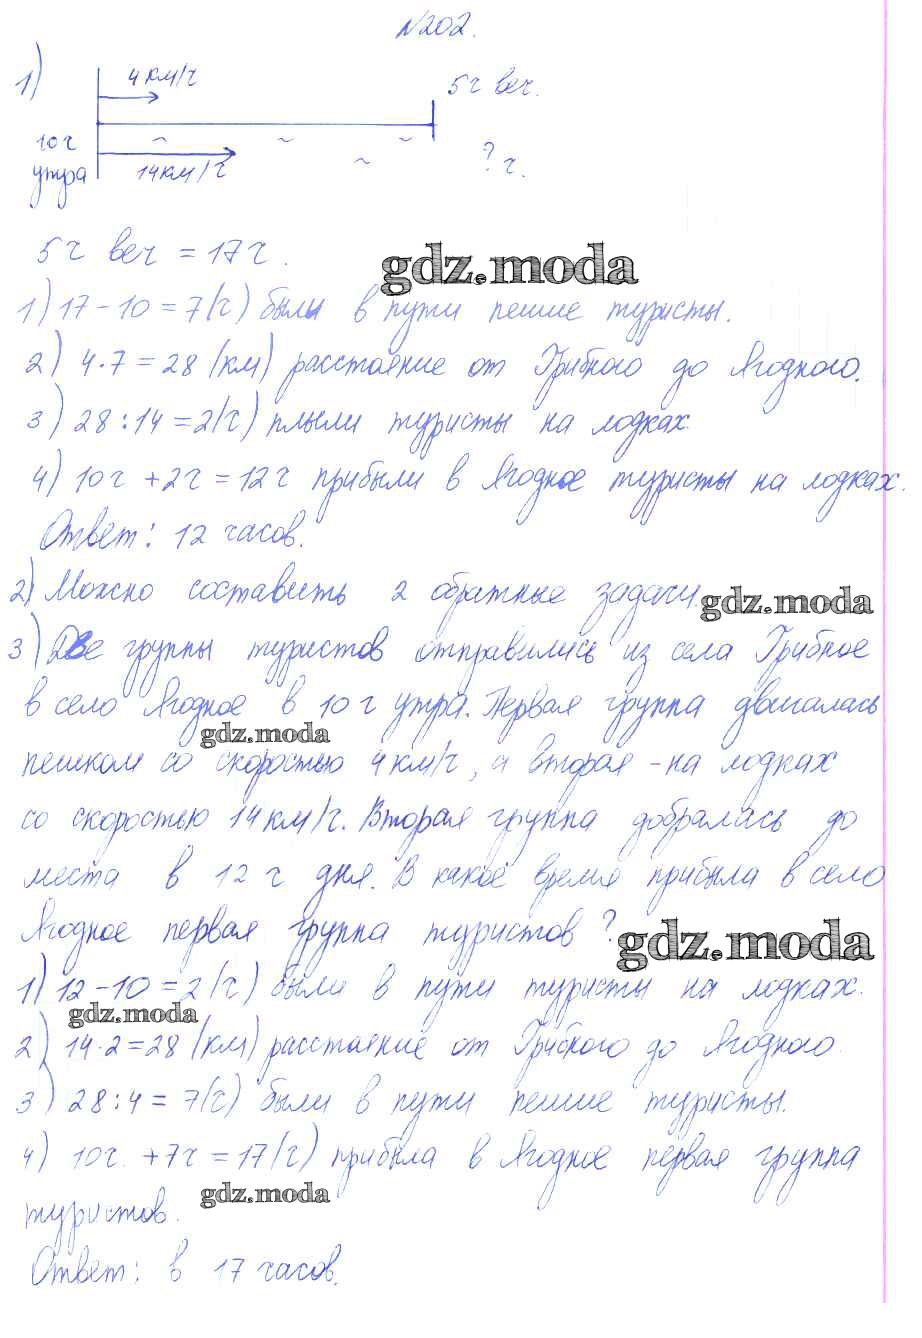 №202.
1)
4 км/ч
5 ч веч.
10 ч
утра
14 км/ч
? ч.
5 ч веч = 17 ч.
gdz.moda
1) 17 - 10 = 7 (ч) были в пути пешие туристы.
2) 4 · 7 = 28 (км) расстояние от Грибного до Ягодного.
3) 28 : 14 = 2 (ч) плыли туристы на лодках
4) 10 ч + 2 ч = 12 ч прибыли в Ягодное туристы на лодках.
Ответ: 12 часов.
2) Можно составить 2 обратные задачи.
gdz.moda
3) Две группы туристов отправились из села Грибное
в село Ягодное в 10 ч утра. Первая группа двигалась
gdz.moda
пешком со скоростью 4 км/ч, а вторая - на лодках
со скоростью 14 км/ч. Вторая группа добралась до
места в 12 ч дня. В какое время прибыла в село
Ягодное первая группа туристов?
gdz.moda
1) 12 - 10 = 2 (ч) были в пути туристы на лодках.
gdz.moda
2) 14 · 2 = 28 (км) расстояние от Грибного до Ягодного.
3) 28 : 4 = 7 (ч) были в пути пешие туристы.
4) 10 ч. + 7 ч = 17 (ч) прибыла в Ягодное первая группа
gdz.moda
туристов.
Ответ: в 17 часов.